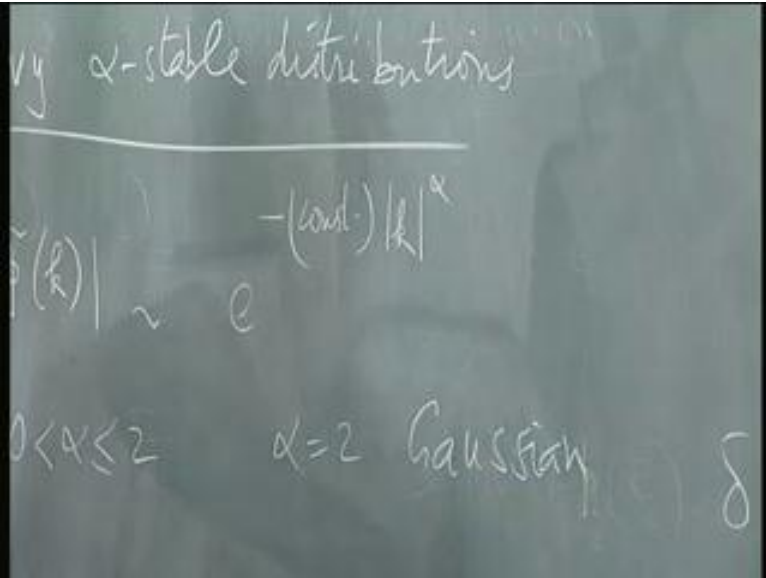 vy α-stable distributions
p̃(k)| ~ e^{-(const.) |k|^α}
0<α≤2 α=2 Gaussian δ